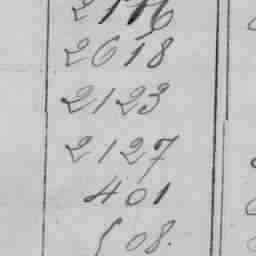 2618
2123
2127
401
508.